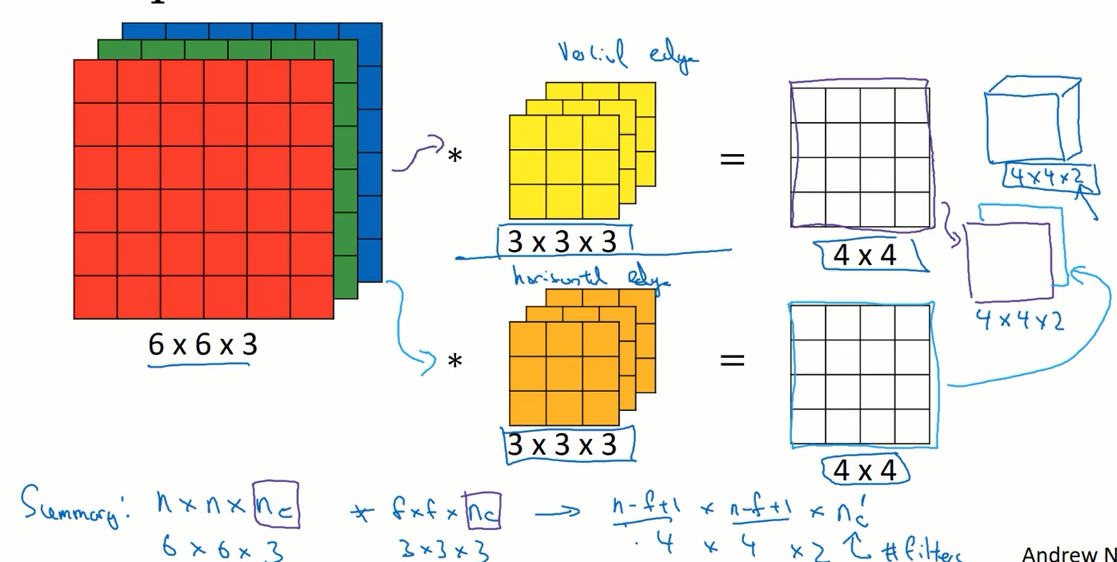 Vertical edge
* =
3 x 3 x 3
4 x 4
4x4x2
horizontal edge
6 x 6 x 3
* =
4x4x2
3 x 3 x 3
4 x 4
Summary: n x n x nc * f x f x nc → n-f+1 x n-f+1 x nc'
6 x 6 x 3 3x3x3 4 x 4 x 2 #filters
Andrew N